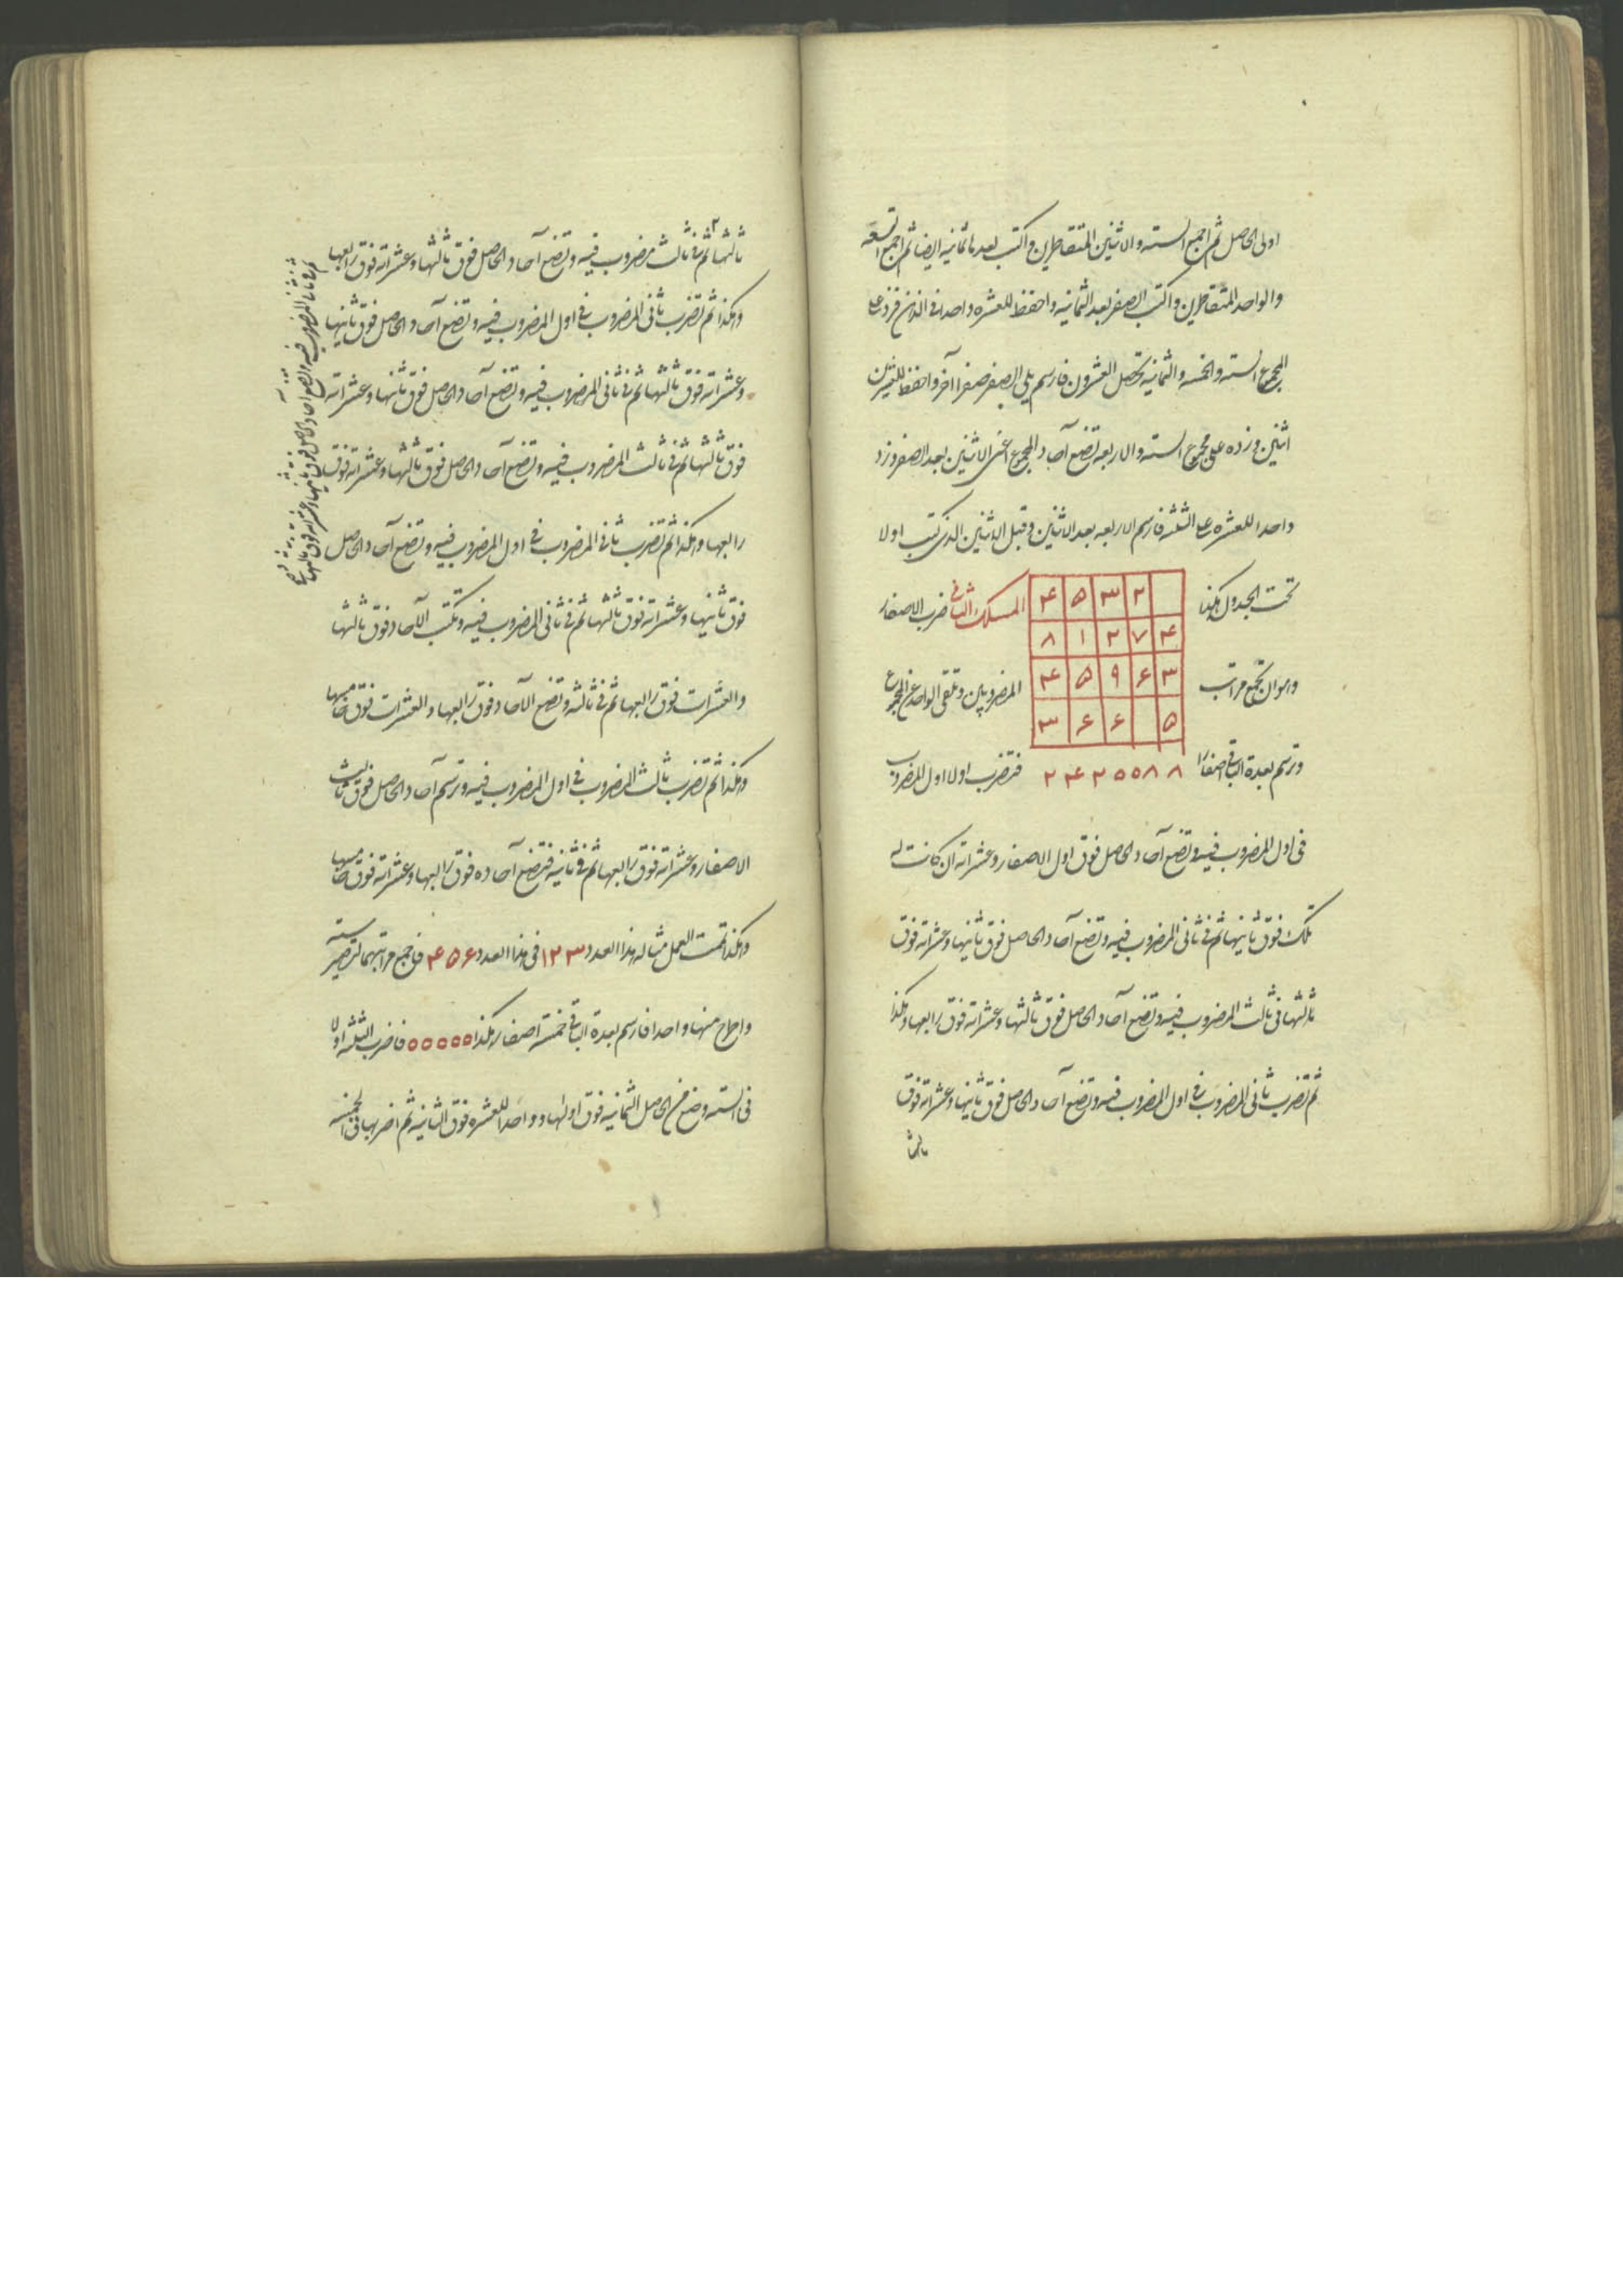 اولى الحاصل ثم اجمع الستة والاثنين المتقاطرين واكتب بعدها ثمانية ايضا ثم اجمع التسعة
والواحد المتقاطرين واكتب الصفر بعد الثمانية واحفظ للعشرة واحدا في الذهن فزد على
المجموع الستة والخمسة والثمانية تحصل العشرون فارسم يلي الصفر صفرا آخر واحفظ للعشرين
اثنين وزده على مجموع الستة والاربعة تضع آحاد المجموع اعنى الاثنين بعد الصفر وزد
واحدا للعشرة على الثلثة فارسم الاربعة بعد الاثنين وقبل الاثنين الذى كتب اولا
تحت الجدول هكذا
۴ ۵ ۳ ۲
۸ ۱ ۲ ۷ ۴
۴ ۵ ۹ ۶ ۳
۳ ۶ ۶ ۵
۲ ۴ ۲ ۵ ۵ ۸ ۸
المسلك الثانى ضرب الاصفار
وهو ان تجمع مراتب المضروبين وتلقى الواحد عن المجموع
وترسم بعدة الباقى اصفارا فتضرب اولا اول المضروب
فى اول المضروب فيه وتضع آحاد الحاصل فوق اول الاصفار وعشراته ان كانت له
تلك فوق ثانيها ثم فى ثانى المضروب فيه وتضع آحاد الحاصل فوق ثانيها وعشراته فوق
ثالثها فى ثالث المضروب فيه وتضع آحاد الحاصل فوق ثالثها وعشراته فوق رابعها وهكذا
ثم تضرب ثانى المضروب فى اول المضروب فيه وتضع آحاد الحاصل فوق ثانيها وعشراته فوق
ثالثها
ثالثها ثم فى ثالث مضروب فيه وتضع آحاد الحاصل فوق ثالثها وعشراته فوق رابعها
وهكذا ثم تضرب ثانى المضروب فى اول المضروب فيه وتضع آحاد الحاصل فوق ثانيها
وعشراته فوق ثالثها ثم فى ثانى المضروب فيه وتضع آحاد الحاصل فوق ثانيها وعشراته
فوق ثالثها ثم فى ثالث المضروب فيه وتضع آحاد الحاصل فوق ثالثها وعشراته فوق
رابعها وهكذا ثم تضرب ثانى المضروب فى اول المضروب فيه وتضع آحاد الحاصل
فوق ثانيها وعشراته فوق ثالثها ثم فى ثانى المضروب فيه وتكتب الآحاد فوق ثالثها
والعشرات فوق رابعها ثم فى ثالثه وتضع الآحاد فوق رابعها والعشرات فوق خامسها
وهكذا ثم تضرب ثالث المضروب فى اول المضروب فيه وترسم آحاد الحاصل فوق ثالث
الاصفار وعشراته فوق رابعها ثم فى ثانيه فتضع آحاده فوق رابعها وعشراته فوق خامسها
وهكذا تمت العمل مثاله هذا العدد ۱۲۳ فى هذا العدد ۴۵۶ فاجمع مراتبهما لتصير ستة
واطرح منها واحدا فارسم بعدة الباقى خمسة اصفار هكذا ٥٥٥٥٥ فاضرب الثلثة اولا
فى الستة وضع من الحاصل الثمانية فوق اولها وواحدا للعشرة فوق الثانية ثم اضربها فى الخمسة
ثم فى ثانى المضروب فيه وتضع آحاد الحاصل فوق ثانيها وعشراته فوق ثالثها